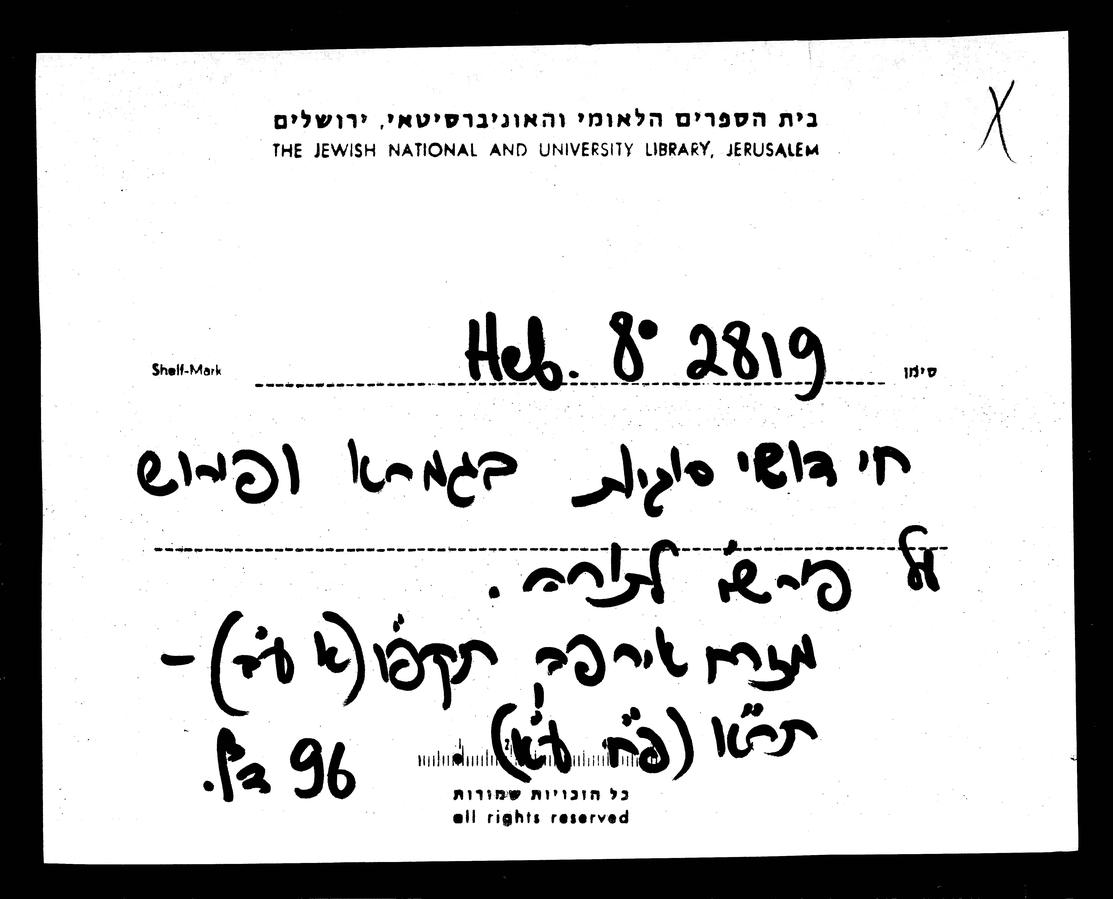 X
בית הספרים הלאומי והאוניברסיטאי, ירושלים
THE JEWISH NATIONAL AND UNIVERSITY LIBRARY, JERUSALEM
Shelf-Mark Heb. 8° 2819 סימן
חידושי סוגיות בגמרא ופירוש
על פירש"י לתורה.
מזרח אירופה תקפ"ו (א ע"ב) –
תר"א (פ"ח ע"א) 96 דף.
כל הזכויות שמורות
all rights reserved